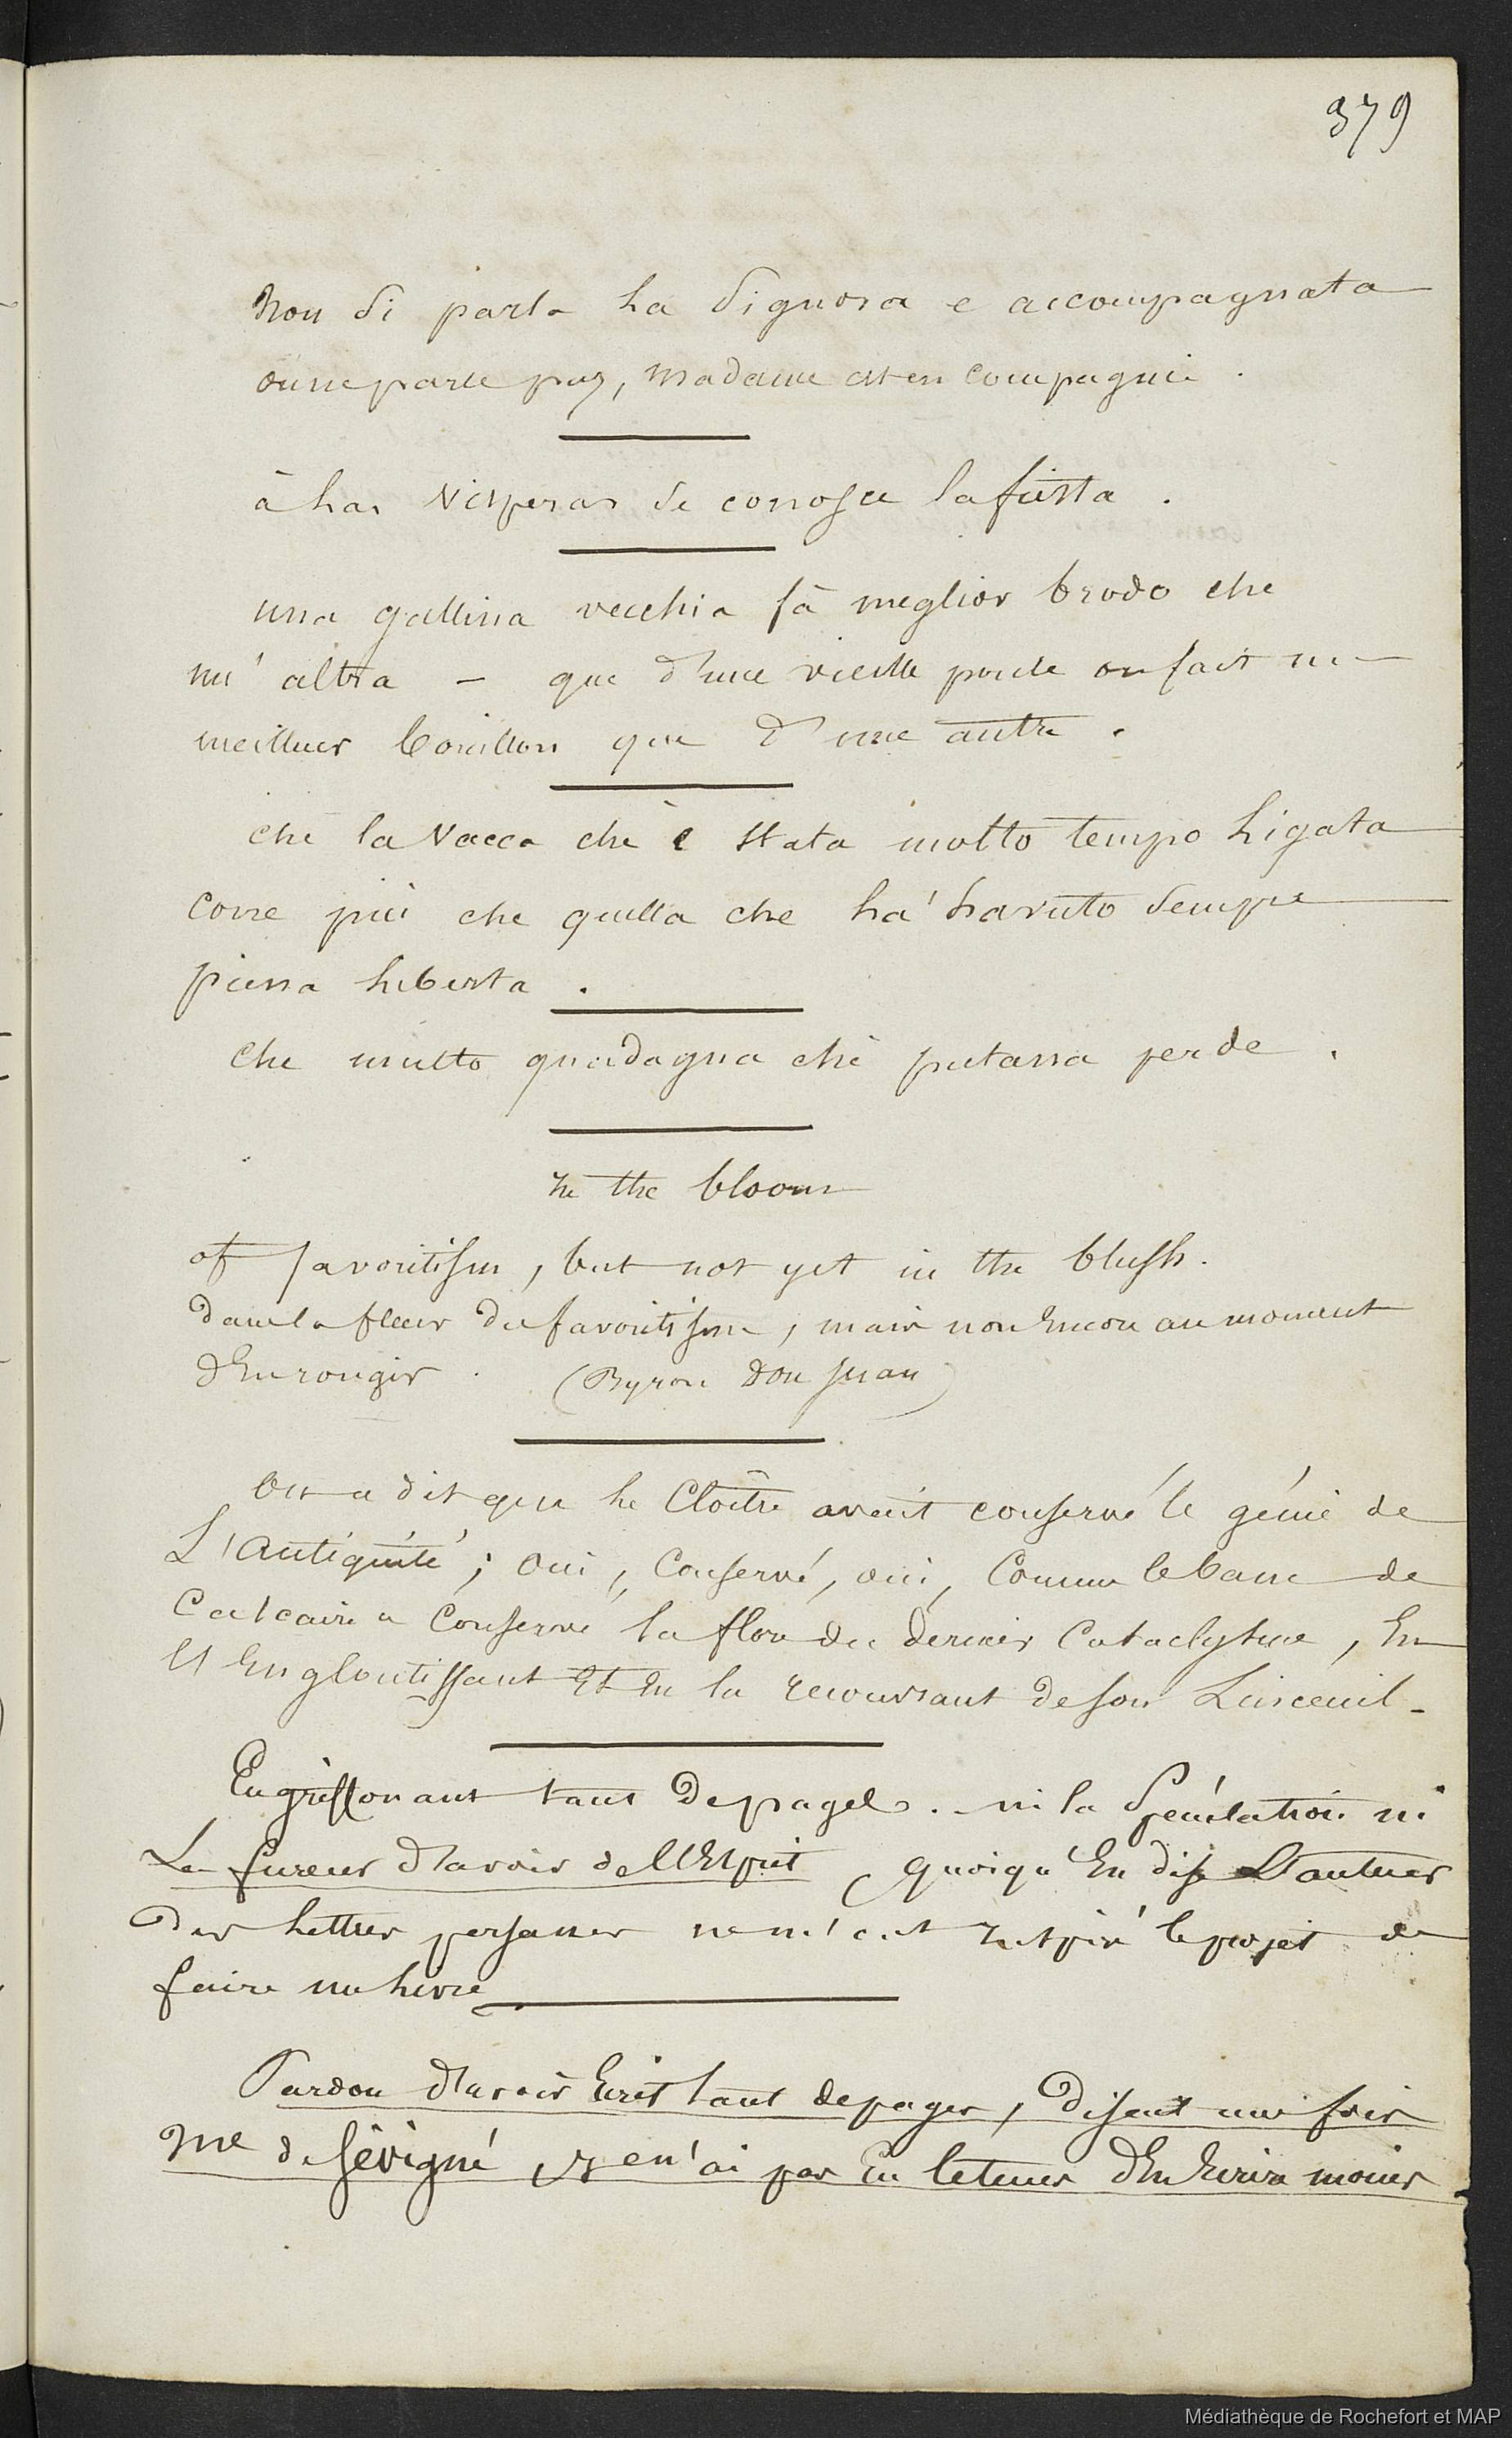 379
Non si parla La Signora e accompagnata
on ne parle pas, Madame est en compagnie.
à Las Visperas se conosce la fiesta.
una gallina vecchia fà meglior brodo che
un' altra - que d'une vieille poule on fait un
meilleur bouillon que d'une autre.
che la Vacca che è stata molto tempo Ligata
corre più che quella che ha' havuto sempre
piena Liberta.
Che multo guadagna chè putana perde.
In the bloom
of favoritism, but not yet in the blush.
dans la fleur du favoritisme, mais non Encore au moment
d'En rougir. (Byron Don Juan)
On a dit que Le Cloître avait conservé le génie de
L'Antiquité; oui, Conservé, oui, Comme le banc de
Calcaire a Conservé la flore du dernier Cataclysme, En
l'Engloutissant Et En la recouvrant de son Linceuil-
En griffonant tant De pages. ni la Spéculation ni
La fureur d'avoir de l'Esprit quoiqu'En dise L'auteur
Des Lettres persannes ne m'ont Inspiré le projet de
faire un Livre
Pardon d'avoir Ecrit tant de pages, Disait une fois
Me de Sévigné, je n'ai pas Eu le tems d'En Ecrire moins
Médiathèque de Rochefort et MAP